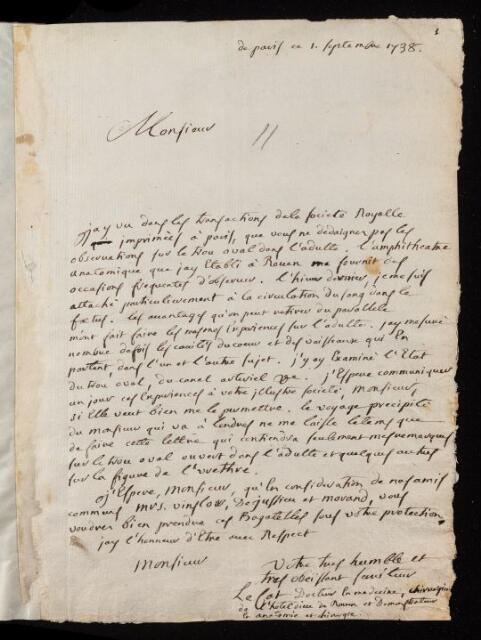 3
de paris ce 1. septembre 1738.
Monsieur
j'ay vu dans les transactions de la société Royalle
imprimées à paris, que vous ne dedaignez pas les
observations sur le trou oval dans l'adulte. l'amphitheatre
anatomique que j'ay établi à Rouen me fournit des
occasions frequentes d'observer. l'hiver dernier, je me suis
attaché particulierement à la circulation du sang dans le
foetus. les avantages qu'on peut retirer du parallele
m'ont fait faire les mesmes experiences sur l'adulte. j'ay mesuré
nombre de fois les cavités du coeur et des vaisseaux qui en
partent, dans l'un et l'autre sujet. j'y ay examiné l'Etat
du trou oval, du canal arteriel &c. j'Espere communiquer
un jour ces Experiences à votre illustre societé, Monsieur,
si Elle veut bien me le permettre. le voyage precipité
du monsieur qui va à londres ne me laisse le tems que
de faire cette lettre qui contiendra seulement mes remarques
sur le trou oval ouvert dans l'adulte et quelques autres
sur la figure de l'urethre.
j'Espere, Monsieur, qu'en consideration de nos amis
communs mrs. vinslow, Dejussieu et morand, vous
voudrez bien prendre ces Bagatelles sous votre protection,
j'ay l'honneur d'Etre avec Respect
Monsieur
Votre tres humble et
tres obeissant serviteur
Le Cat Docteur en medecine, chirurgien
de l'hotel dieu de Rouen et Demonstrateur
en anatomie et chirurgie.